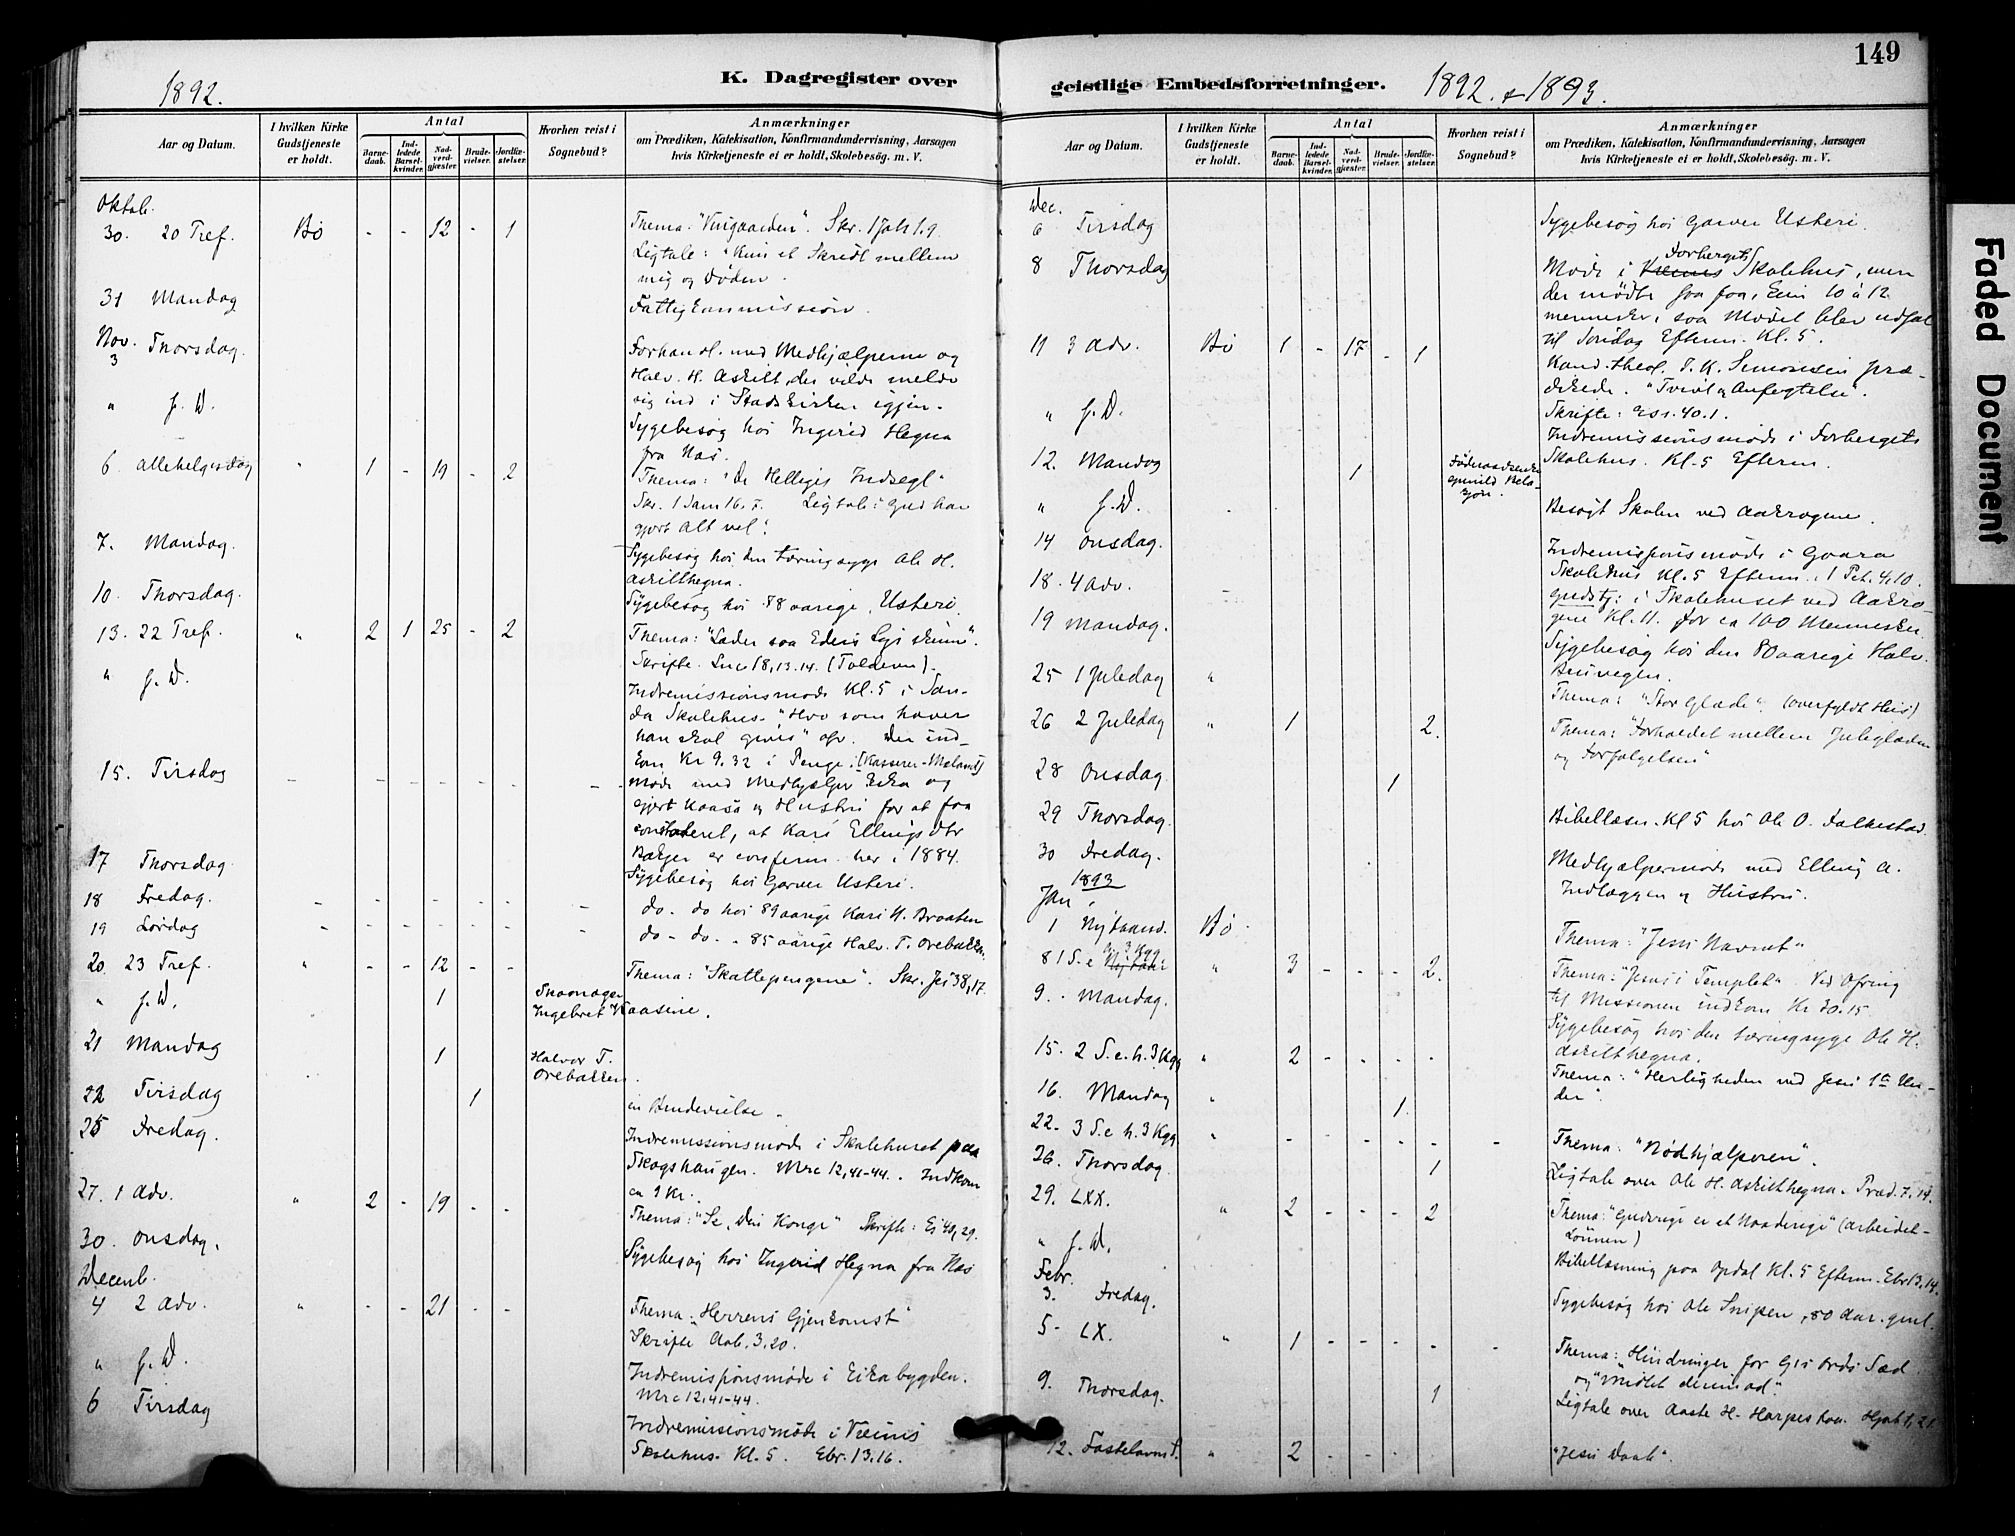 149
1892.
K. Dagregister over
Aar og Datum.
I hvilken Kirke Gudstjeneste er holdt.
Antal
Barnedaab.
Indledede Barselkvinder.
Nadverdgjæster.
Brudevielser.
Jordfæstelser.
Hvorhen reist i Sognebud?
Anmærkninger
om Prædiken, Katekisation, Konfirmandundervisning, Aarsagen
hvis Kirketjeneste ei er holdt, Skolebesög. m. V.
Oktob.
30. 20 Tref. Bö - - 12 - 1 Thema: "Vingaarden". Skr. 1 Joh 1.9
Ligtale: "Kun et Skridt mellem
mig og Döden.
31 Mandag Fattigkommission.
Nov.
3 Thorsdag. Forhandl. med Medhjælperne og
Halv. H. Askilt, der vilde melde
sig ind i Statskirken igjen.
" s. D. Sygebesög hos Ingerid Hegna
fra Nas.
6. Allehelgesdag " 1 - 19 - 2 Thema: "De Helliges Indsegl"
Skr. 1 Sam 16.7. Ligtale: Gud har
gjort Alt vel".
7. Mandag. Sygebesög hos den tæringssyge Ole H.
Askilthegna.
10. Thorsdag. Sygebesög hos 88 aarige Usteri.
13. 22 Tref. " 2 1 25 - 2 Thema: "Lader saa Eders Lys skinne".
Skrifte. Luc 18,13.14. (Tolderen).
" s. D. Indremissionsmöde Kl. 5 i San-
da Skolehus. "Hvo som haver
han skal gives" osv. Der ind-
kom Kr 9.32 i Penge. (Kasserer-Moland)
15. Tirsdag - - - - - - - - Möde med Medhjælper Eika og
Gjert Kaasa og Hustru for at faa
konstateret, at Kari Ellings dtr
Bakjer er confirm. her i 1884.
17 Thorsdag. Sygebesög hos Garver Usteri.
18 Fredag. - - - - - - - do. do hos 89 aarige Kari H. Braaten
19 Lördag - - - - - - - do - do. - 85 aarige Halv. T. Orebakken.
20 23 Tref. " - - 12 - - Thema: "Skattepengene". Skr. Jes 38,17.
" s. D. 1 Skomager
Ingebret Kaasene.
21 Mandag 1 Halvor T.
Orebakken.
22 Tirsdag 1 en Brudevielse.
25 Fredag. Indremissionsmöde i Skolehuset paa
Skogshaugen. Mrc 12,41-44. Indkom
ca 9 Kr.
27. 1 Adv. " 2 - 19 - - Thema: "Se, Din Konge" Skrifte: Es 40,29.
30. Onsdag. Sygebesög hos Ingerid Hegna fra Nas
Decemb.
4 2 Adv. " - - 21 - - Thema: Herrens Gjenkomst"
Skrifte Aab. 3.20.
" s. D. Indremissionsmöde i Eikabygden.
Mrc 12,41-44.
6 Tirsdag Indremissionsmöde i Vreims
Skolehus. Kl. 5. Ebr. 13.16.
geistlige Embedsforretninger.
1892. & 1893.
Aar og Datum.
I hvilken Kirke Gudstjeneste er holdt.
Antal
Barnedaab.
Indledede Barselkvinder.
Nadverdgjæster.
Brudevielser.
Jordfæstelser.
Hvorhen reist i Sognebud?
Anmærkninger
om Prædiken, Katekisation, Konfirmandundervisning, Aarsagen
hvis Kirketjeneste ei er holdt, Skolebesög. m. V.
Dec.
6 Tirsdag Sygebesög hos Garver Usteri.
8 Thorsdag Möde i Vreims Forbergets Skolehus, men
der mödte saa faa, kun 10 à 12
mennesker, saa Mödet blev udsat
til Söndag Efterm. Kl. 5.
11 3 Adv. Bö 1 - 17 - 1 Kand. theol. J. K. Simonsen præ-
dikede. "Tvivl og Anfegtelse".
Skrifte: Es. 40.1.
" s. D. Indremissionsmöde i Forbergets
Skolehus. Kl. 5 Efterm.
12. Mandag 1
" s. D. Besögt Skolen ved Aakrogene.
14 Onsdag. Indremissionsmöde i Gvara
Skolehus Kl. 5 Efterm. 1 Pet. 4,10.
18. 4 Adv. Gudstj: i Skolehuset ved Aakro-
gene Kl. 11. for ca 100 Mennesker.
19 Mandag. Sygebesög hos den 80 aarige Halv.
25 1 Juledag " Thema: "Stor Glæde". (overfyldt Hus)
26 2 Juledag " 1 2. Thema: "Forholdet mellem Juleglæden
og Forfölgelsen"
28 Onsdag 1
29 Thorsdag. Bibellæsn. Kl 5 hos Ole O. Falkestad.
30 Fredag. Medhjælpermöde med Elling A.
Indlæggen og Hustru.
1893
Jan.
1 Nytaarsd. Bö. Thema: "Jesu Navn"
8 1 S. e Nytaar h. 3 Kgr. " 3 - - - 2. Thema: "Jesus i Templet". Ved Ofring
til Missionen indkom Kr 30.15
9. Mandag. Sygebesög hos den tæringssyge Ole H.
Askilthegna.
15. 2 S. e. h. 3 Kgr " 2 - - - - Thema: "Herligheden ved Jesu 1te Un-
der".
16. Mandag " 1
22. 3 S. e h. 3 Kgr " - - - - - - Thema: "Nödhjælperen".
26. Thorsdag. 1 Ligtale over Ole H. Askilthegna. Præd. 7.14.
29. LXX. " 2 - - - 2 Thema: "Gudsrige er et Naaderige" (Arbeidet-
Lönnen)
" s. D. Bibellæsning paa Opdal Kl. 5 Efterm. Ebr 13,14.
Febr.
3. Fredag. Sygebesög hos Ole Snipen, 80 Aar gml.
5. LX. " 1 - - - - - Thema: Hindringer for Gds Ords Sæd
9. Thorsdag. 1 Ligtale over Aaste H. Harpeskaa.
12. Fastelavns S. " 2 - - - - "Jesu Daab".
Faded Document